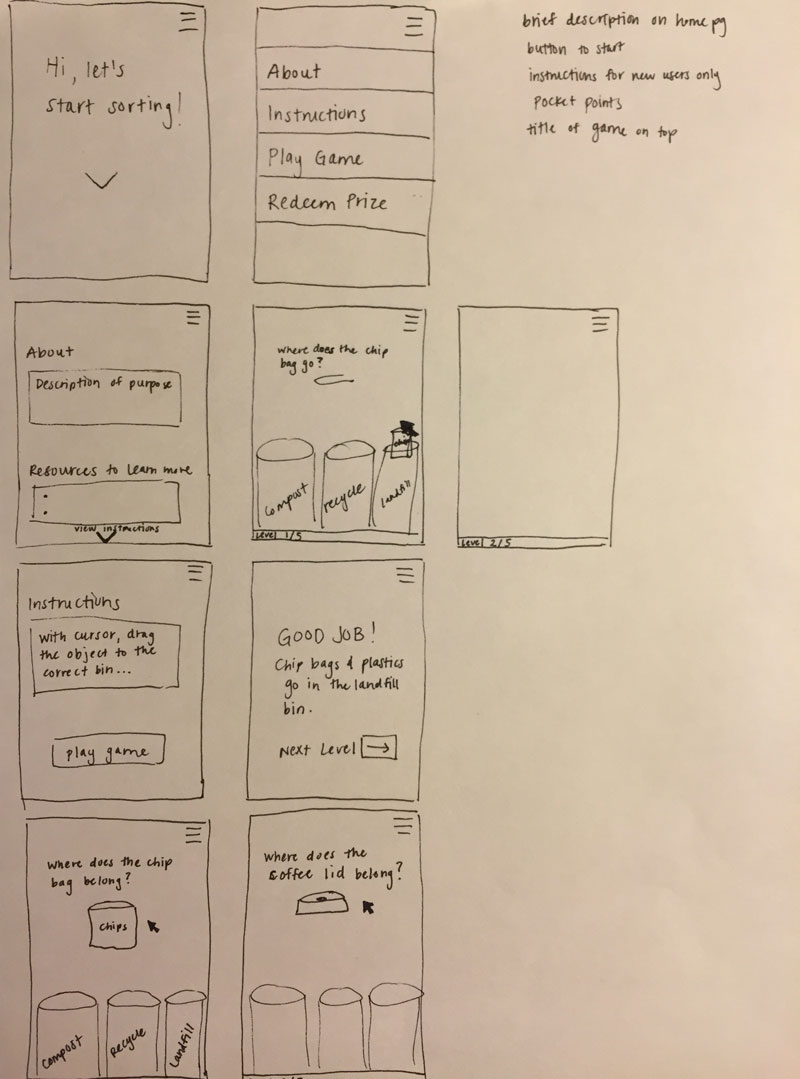 Hi, let's
start sorting!
About
Instructions
Play Game
Redeem Prize
brief description on home pg
button to start
instructions for new users only
Pocket points
title of game on top
About
Description of purpose
Resources to learn more
view instructions
where does the chip
bag go?
chips
compost
recycle
landfill
Level 1/5
Level 2/5
Instructions
with cursor, drag
the object to the
correct bin...
play game
GOOD JOB!
Chip bags & plastics
go in the landfill
bin.
Next Level
where does the chip
bag belong?
chips
compost
recycle
landfill
where does the
coffee lid belong?